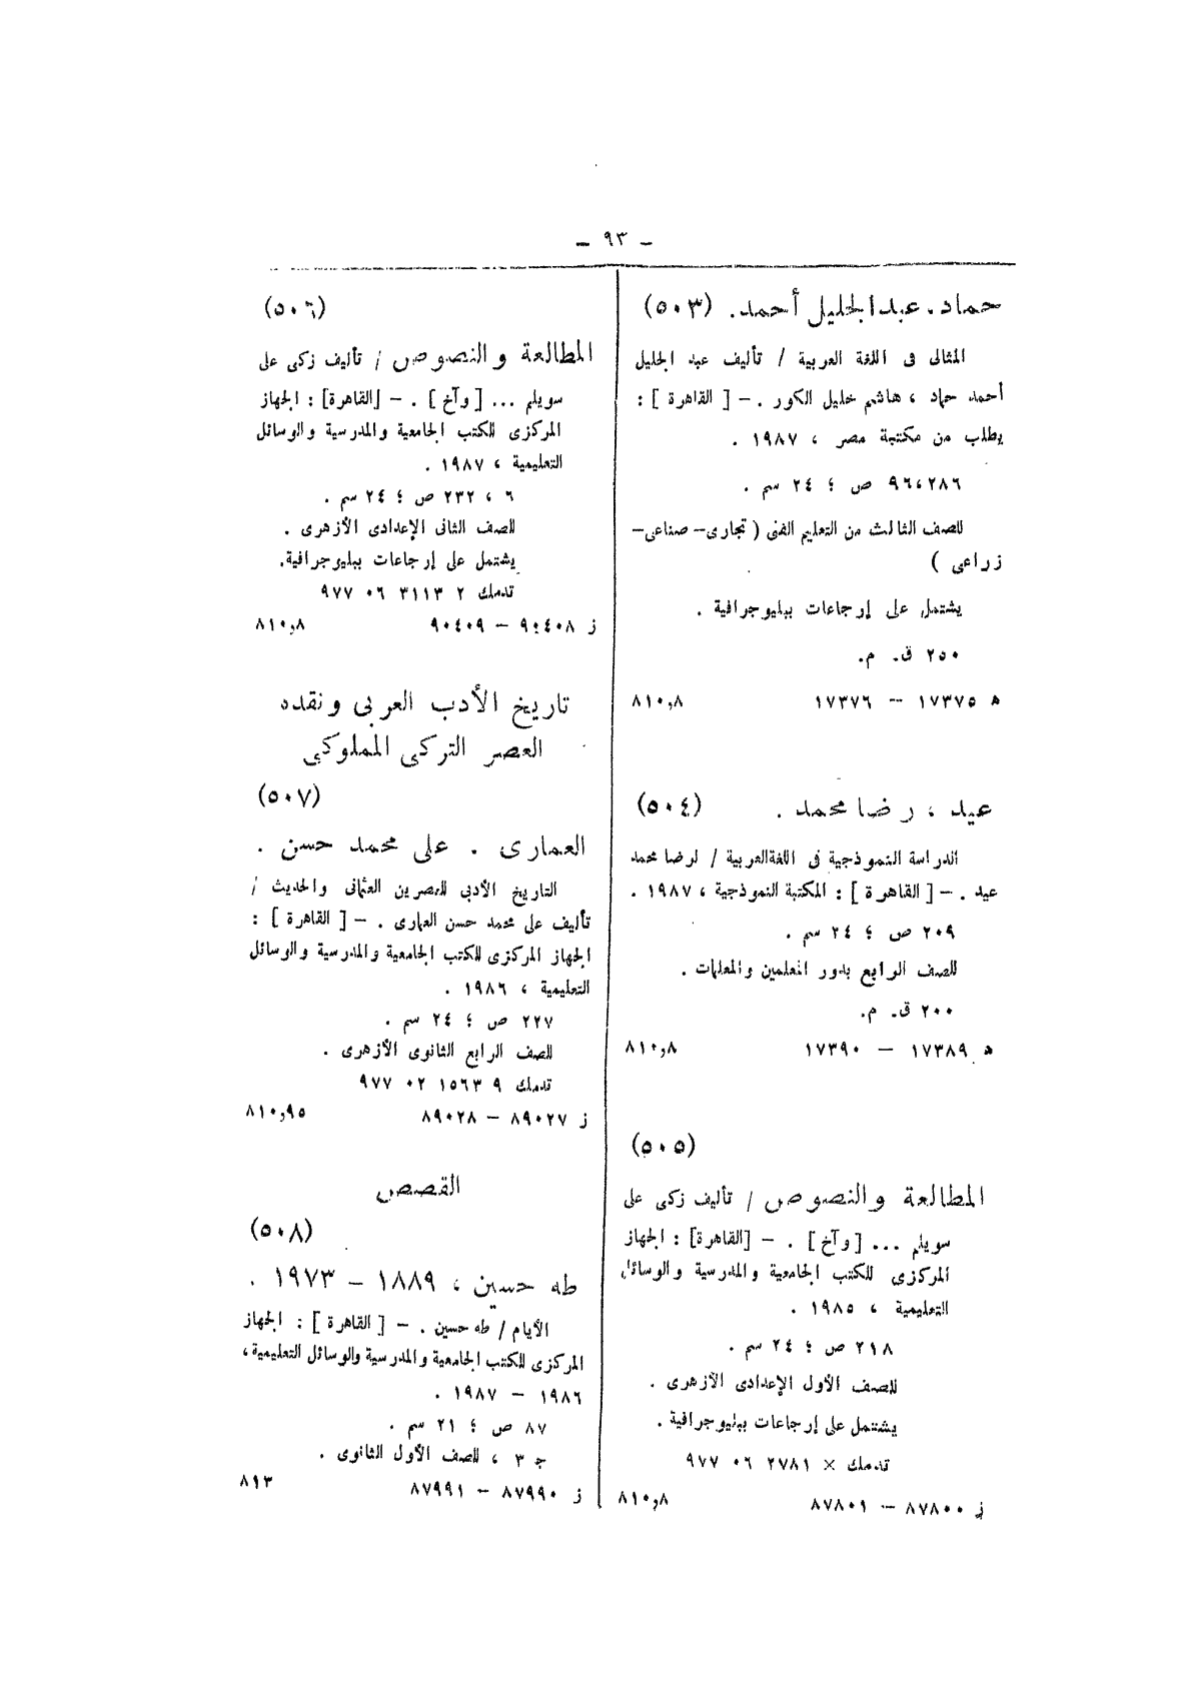 – ٩٣ –
حماد. عبدالجليل أحمد. (٥٠٣)
المثالى فى اللغة العربية / تأليف عبد الجليل
أحمد حماد ، هاشم خليل الكور . – [ القاهرة ] :
يطلب من مكتبة مصر ، ١٩٨٧ .
٩٦،٢٨٦ ص ؛ ٢٤ سم .
للصف الثالث من التعليم الفنى ( تجارى– صناعى–
زراعى )
يشتمل على إرجاعات ببليوجرافية .
٢٥٠ ق. م.
ه ١٧٣٧٥ – ١٧٣٧٦ ٨١٠,٨
عيد ، رضا محمد . (٥٠٤)
الدراسة النموذجية فى اللغةالعربية / لرضا محمد
عيد . – [ القاهرة ] : المكتبة النموذجية ، ١٩٨٧ .
٢٠٩ ص ؛ ٢٤ سم .
للصف الرابع بدور المعلمين والمعلمات .
٢٠٠ ق. م.
ه ١٧٣٨٩ – ١٧٣٩٠ ٨١٠,٨
(٥٠٥)
المطالعة والنصوص / تأليف زكى على
سويلم ... [وآخ] . – [القاهرة] : الجهاز
المركزى للكتب الجامعية والمدرسية والوسائل
التعليمية ، ١٩٨٥ .
٢١٨ ص ؛ ٢٤ سم .
للصف الأول الإعدادى الأزهرى .
يشتمل على إرجاعات ببليوجرافية .
تدمك × ٢٧٨١ ٠٦ ٩٧٧
ز ٨٧٨٠٠ – ٨٧٨٠١ ٨١٠,٨
(٥٠٦)
المطالعة والنصوص / تأليف زكى على
سويلم ... [وآخ] . – [القاهرة] : الجهاز
المركزى للكتب الجامعية والمدرسية والوسائل
التعليمية ، ١٩٨٧ .
٦ ، ٢٣٢ ص ؛ ٢٤ سم .
للصف الثانى الإعدادى الأزهرى .
يشتمل على إرجاعات ببليوجرافية.
تدمك ٢ ٣١١٣ ٠٦ ٩٧٧
ز ٩٠٤٠٨ – ٩٠٤٠٩ ٨١٠,٨
تاريخ الأدب العربى ونقده
العصر التركى المملوكى
(٥٠٧)
العمارى . على محمد حسن .
التاريخ الأدبى للعصرين العثمانى والحديث /
تأليف على محمد حسن العمارى . – [ القاهرة ] :
الجهاز المركزى للكتب الجامعية والمدرسية والوسائل
التعليمية ، ١٩٨٦ .
٢٢٧ ص ؛ ٢٤ سم .
للصف الرابع الثانوى الأزهرى .
تدمك ٩ ١٥٦٣ ٠٢ ٩٧٧
ز ٨٩٠٢٧ – ٨٩٠٢٨ ٨١٠,٩٥
القصص
(٥٠٨)
طه حسين ، ١٨٨٩ – ١٩٧٣ .
الأيام / طه حسين . – [ القاهرة ] : الجهاز
المركزى للكتب الجامعية والمدرسية والوسائل التعليمية ،
١٩٨٦ – ١٩٨٧ .
٨٧ ص ؛ ٢١ سم .
جـ ٣ ، للصف الأول الثانوى .
ز ٨٧٩٩٠ – ٨٧٩٩١ ٨١٣